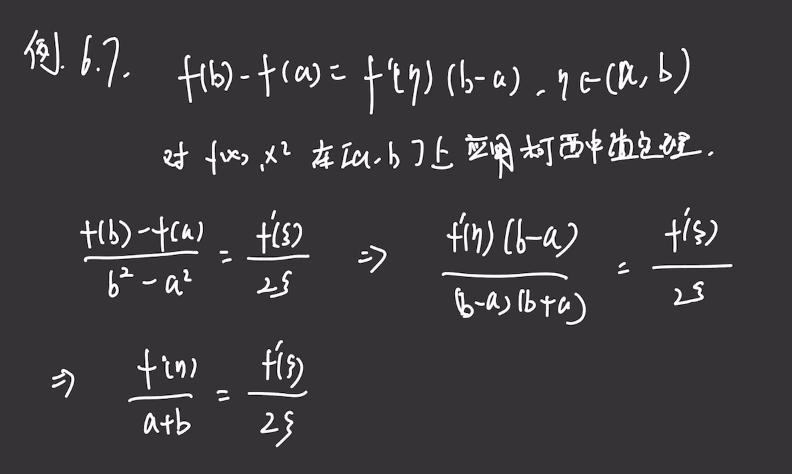 例.6.7. f(b)-f(a)=f'(η)(b-a),η∈(a,b)
对 f(x),x² 在[a,b]上应用柯西中值定理.
\frac{f(b)-f(a)}{b²-a²} = \frac{f'(ξ)}{2ξ} ⇒ \frac{f'(η)(b-a)}{(b-a)(b+a)} = \frac{f'(ξ)}{2ξ}
⇒ \frac{f'(η)}{a+b} = \frac{f'(ξ)}{2ξ}